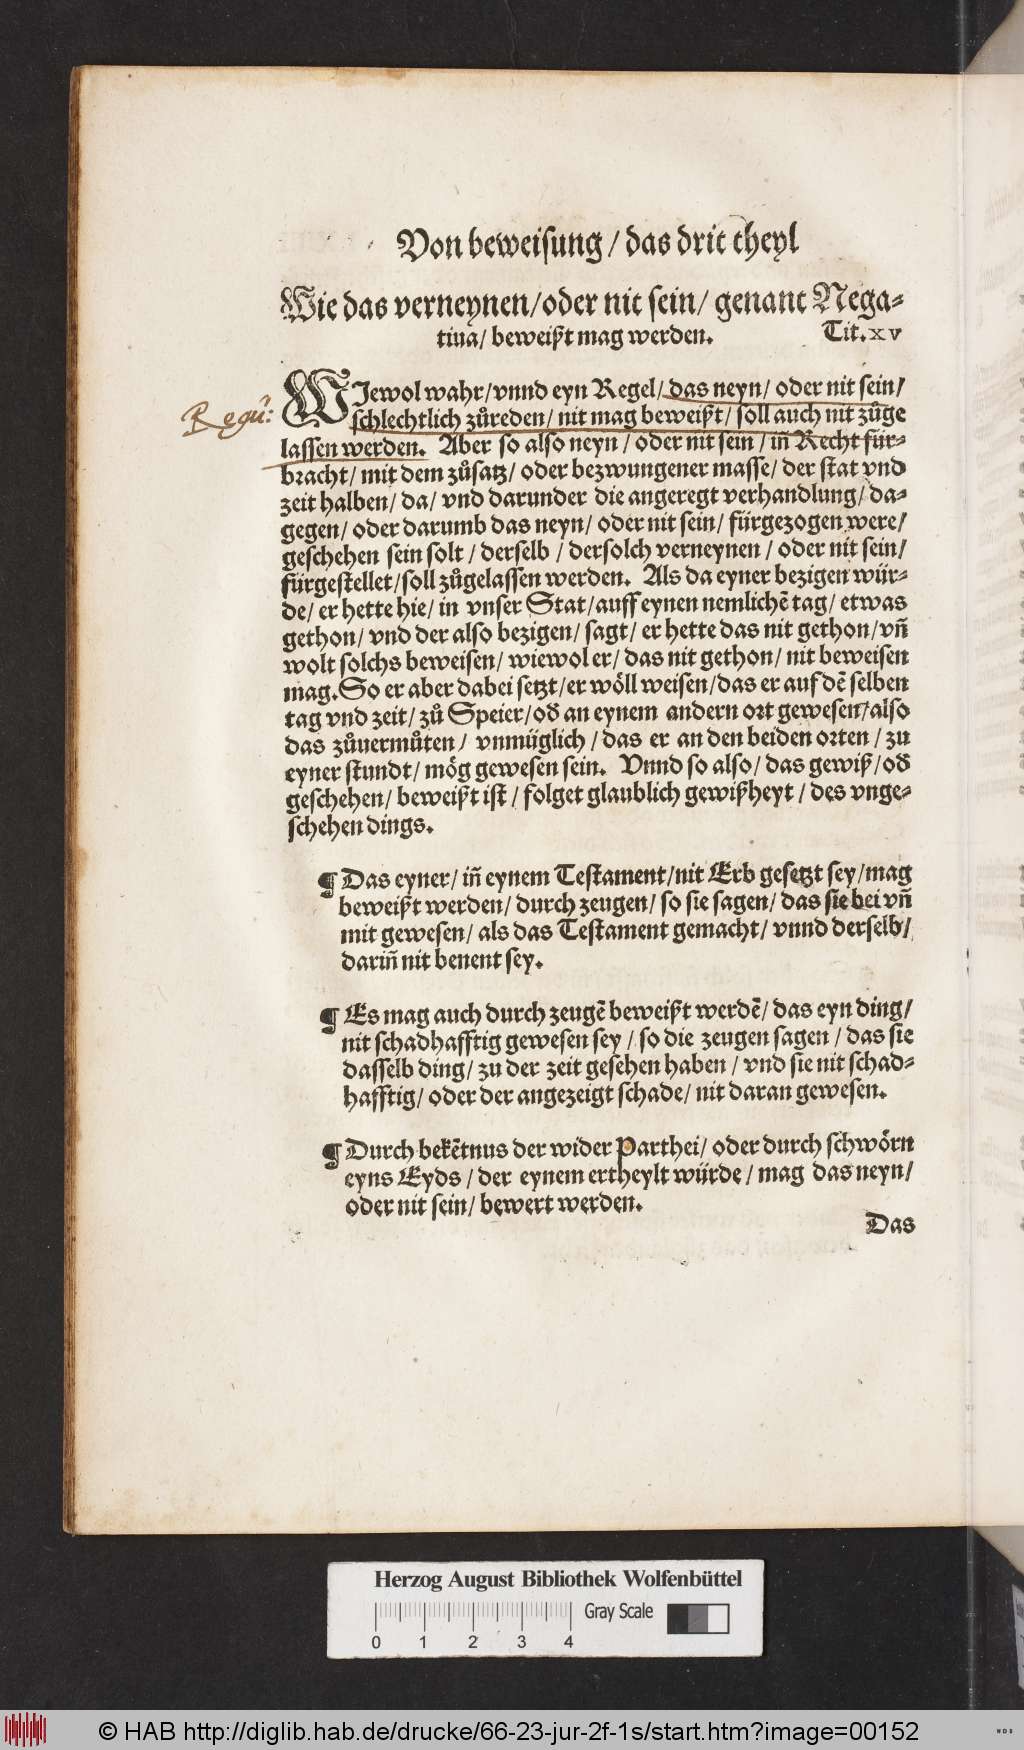 Von beweisung / das drit theyl
Wie das verneynen/oder nit sein/ genant Nega-
tiua/ beweißt mag werden. Tit. xv
WIewol wahr/vnnd eyn Regel/ das neyn/ oder nit sein/
Regũ:
schlechtlich zůreden/ nit mag beweißt/ soll auch nit zůge
lassen werden. Aber so also neyn / oder nit sein / in̄ Recht für-
bracht/ mit dem zůsatz/ oder bezwungener masse/ der stat vnd
zeit halben/ da/ vnd darunder die angeregt verhandlung/ da-
gegen/ oder darumb das neyn/ oder nit sein/ fürgezogen were/
geschehen sein solt / derselb / dersolch verneynen / oder nit sein/
fürgestellet/soll zůgelassen werden. Als da eyner bezigen wür-
de/ er hette hie/ in vnser Stat/auff eynen nemlichē tag/ etwas
gethon/ vnd der also bezigen/ sagt/ er hette das nit gethon/ vñ
wolt solchs beweisen/ wiewol er/ das nit gethon/ nit beweisen
mag. So er aber dabei setzt/er wöll weisen/das er auf dē selben
tag vnd zeit/ zů Speier/od̄ an eynem andern ort gewesen/also
das zůuermůten / vnmüglich / das er an den beiden orten / zu
eyner stundt/ mög gewesen sein. Vnnd so also/ das gewiß/ od̄
geschehen/ beweißt ist / folget glaublich gewißheyt / des vnge-
schehen dings.
¶ Das eyner/ in̄ eynem Testament/nit Erb gesetzt sey/mag
beweißt werden/ durch zeugen/ so sie sagen/ das sie bei vñ
mit gewesen/ als das Testament gemacht/ vnnd derselb/
darin̄ nit benent sey.
¶ Es mag auch durch zeugē beweißt werdē/ das eyn ding/
nit schadhafftig gewesen sey / so die zeugen sagen / das sie
dasselb ding/ zu der zeit gesehen haben / vnd sie nit schad-
hafftig/ oder der angezeigt schade/ nit daran gewesen.
¶ Durch bekētnus der wider Parthei/ oder durch schwörn
eyns Eyds / der eynem ertheylt würde/ mag das neyn/
oder nit sein/ bewert werden.
Das
Herzog August Bibliothek Wolfenbüttel
Gray Scale
0 1 2 3 4
© HAB http://diglib.hab.de/drucke/66-23-jur-2f-1s/start.htm?image=00152